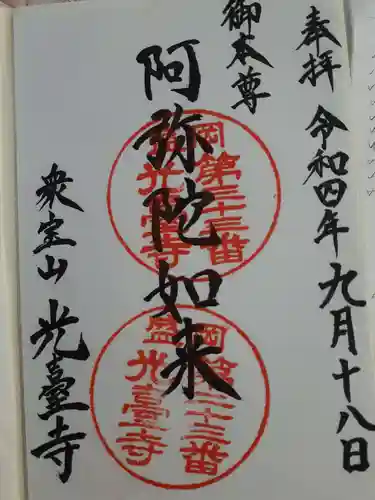 奉拝 令和四年九月十八日
御本尊
阿弥陀如来
衆宝山 光臺寺
盛岡第三十三番
光臺寺
盛岡第三十三番
光臺寺